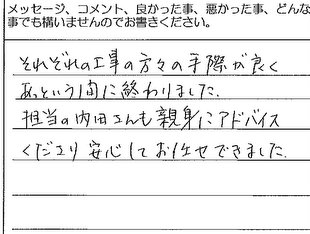 メッセージ、コメント、良かった事、悪かった事、どんな
事でも構いませんのでお書きください。
それぞれの工事の方々の手際が良く
あっという間に終わりました.
担当の内田さんも親身にアドバイス
くださり安心してお任せできました.